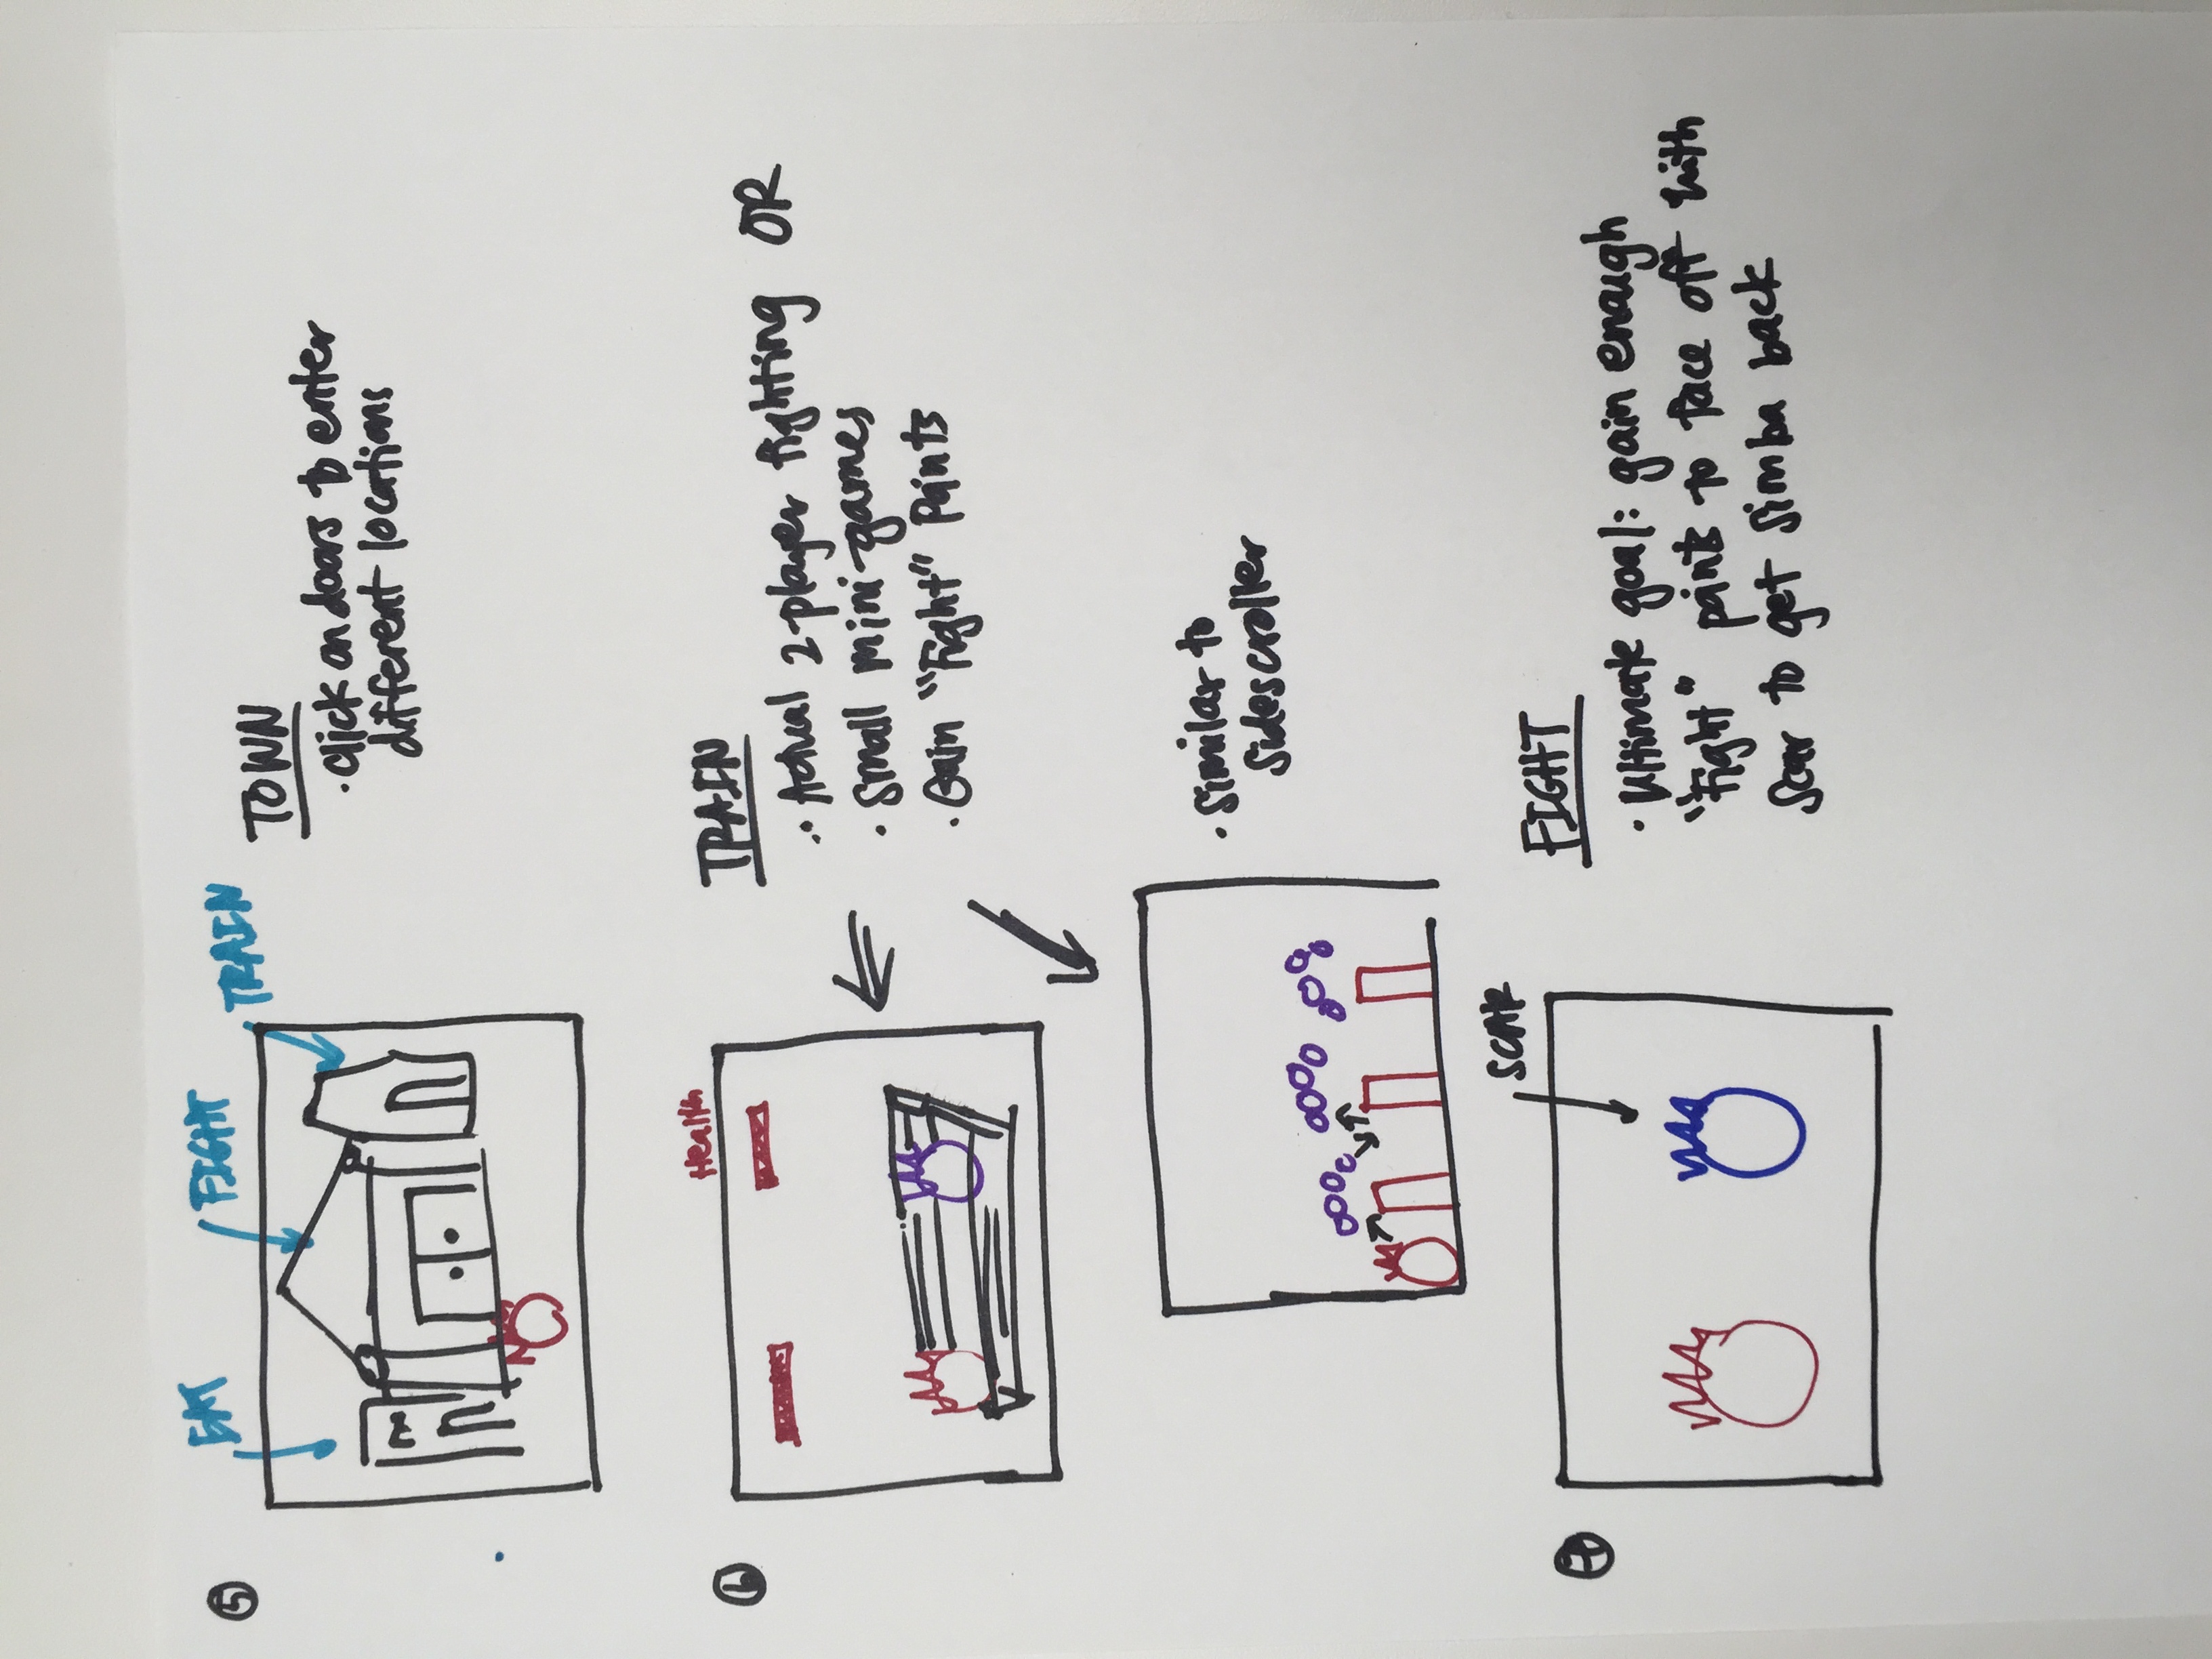 5
EAT
FIGHT
TRAIN
TOWN
• click on doors to enter
different locations
6
Health
TRAIN
• Actual 2-player fighting OR
• Small mini-games
• Gain "Fight" Points
• Similar to
sidescroller
7
SCAR
FIGHT
• Ultimate goal: gain enough
"Fight" points to face off with
Scar to get simba back